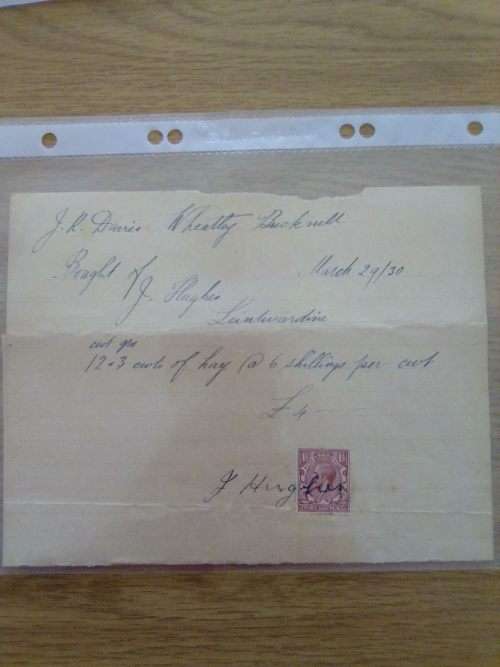 J. R. Davis Wheatley Bucknell
Bought of March 29/30
J. Hughes
Leintwardine
cwt qrs
12 - 3 cwts of hay @ 6 shillings per cwt
£ 4
J Hughes